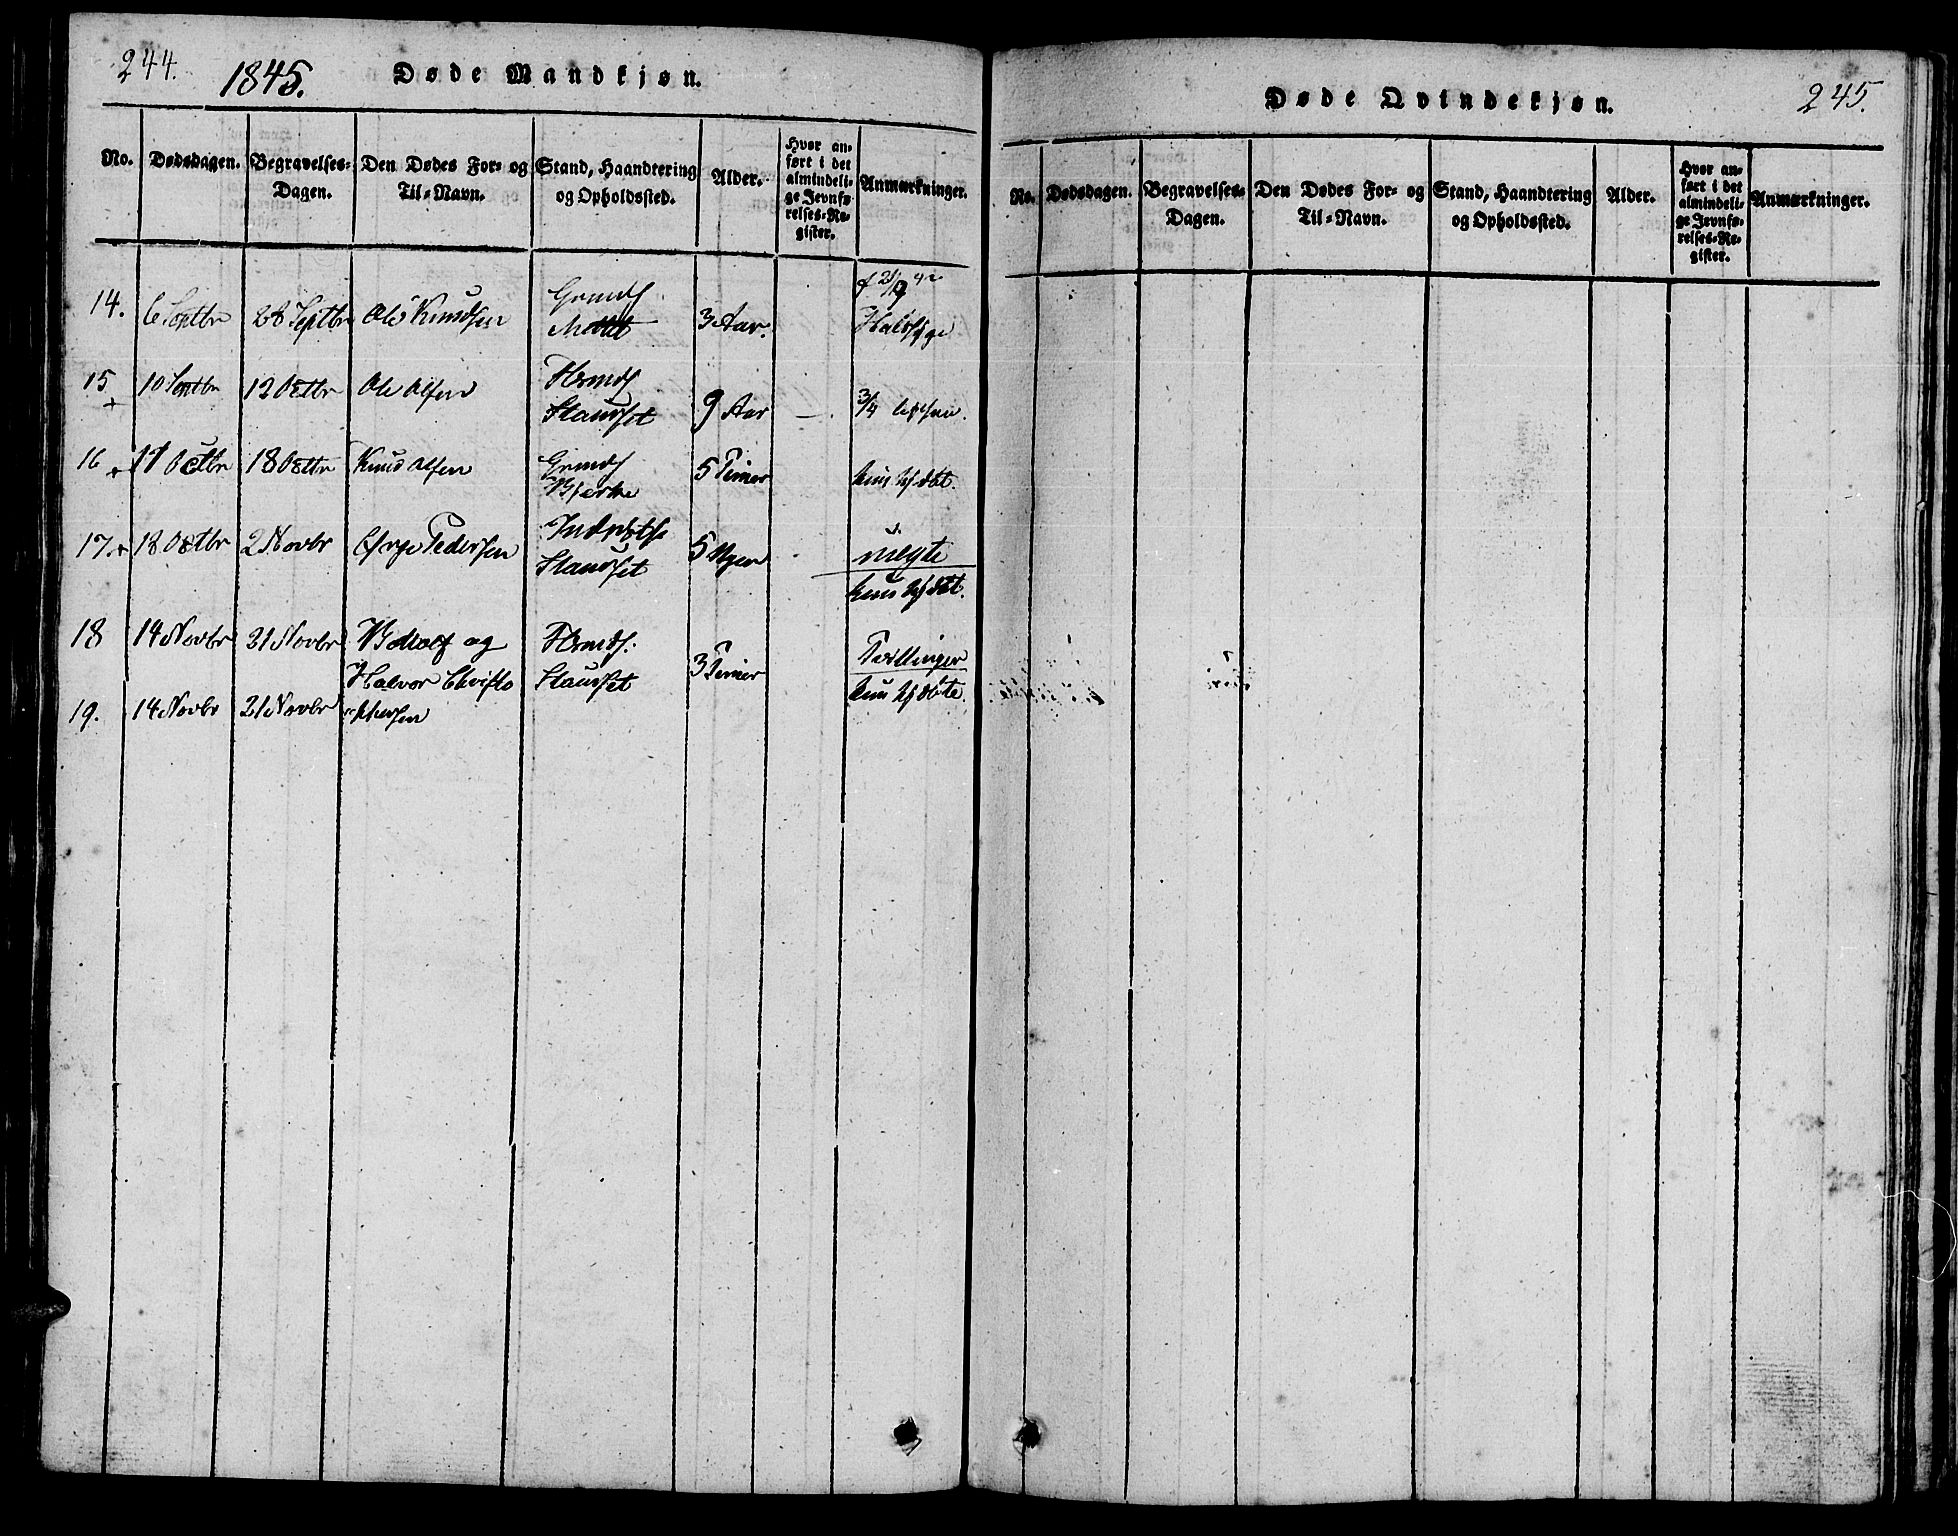 244.
1845.
Døde Mandkjøn.
No.
Dødsdagen.
Begravelses-Dagen.
Den Dødes For- og Til-Navn.
Stand, Haandtering og Opholdssted.
Alder.
Hvor anført i det almindelige Jevnførelses-Register.
Anmærkninger.
14. 6 Septbr 28 Septbr Ole Knudsen Grmds 3 Aar. Halssyge
15 10 Septbr 12 Octbr Ole Olsen Hsmds Staurset 9 Aar —. 3/4
16 + 17 Octbr 18 Octbr Knud Olsen Grmds Bjerke 5 Timer kun hjdbt.
17. + 18 Octbr 2 Novbr Pedersen Staurset 5 Uger uægte
kun hjdbt.
18 14 Novbr 21 Novbr Botolf og Hsmds: 3 Timer Tvillinger
Halvor Christo Staurset kun hjdbte.
19. 14 Novbr 21 Novbr phersen
245.
Døde Qvindekjøn.
No.
Dødsdagen.
Begravelses-Dagen.
Den Dødes For- og Til-Navn.
Stand, Haandtering og Opholdssted.
Alder.
Hvor anført i det almindelige Jevnførelses-Register.
Anmærkninger.